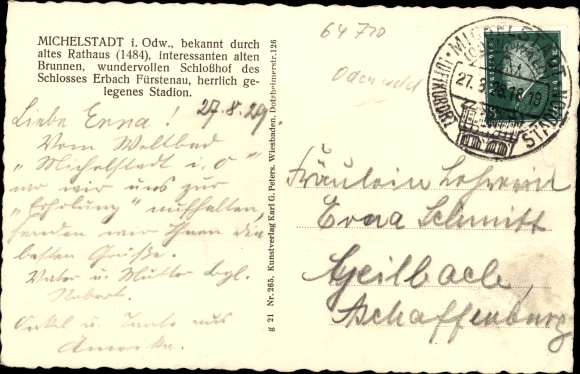 MICHELSTADT i. Odw., bekannt durch
altes Rathaus (1484), interessanten alten
Brunnen, wundervollen Schloßhof des
Schlosses Erbach Fürstenau, herrlich ge-
legenes Stadion.
27.8.29.
Liebe Erna!
Vom Weltbad
"Michelstadt i. O"
wo wir uns zur
"Erholung" aufhalten,
senden wir Ihnen die
besten Grüße.
Vater u. Mutter
Robert.
Onkel u. Tante aus
Amerika.
g 21 Nr. 265. Kunstverlag Karl G. Peters, Wiesbaden, Dotzheimerstr. 126
64720
Odenwald
MICHELSTADT
27.8.
LUFTKURORT
STADION
Fräulein Lehrerin
Erna Schmitt
Geilbach
Aschaffenburg